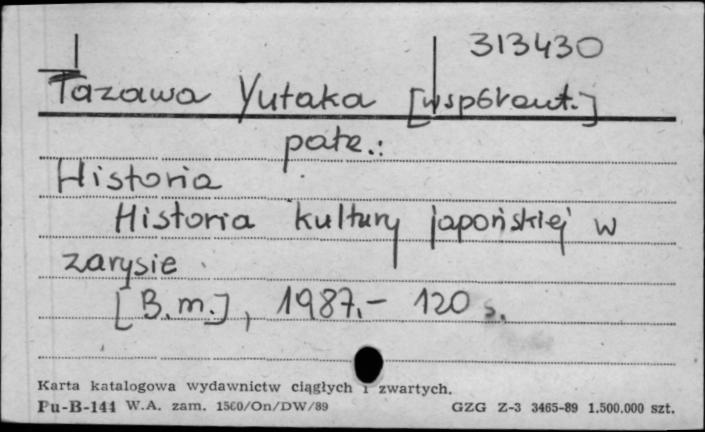 313430
Tazawa Yutaka [współaut.]
patrz.:
Historia
Historia kultury japońskiej w
zarysie
[B.m.], 1987.- 120 s.
Karta katalogowa wydawnictw ciągłych i zwartych.
Pu-B-144 W.A. zam. 1560/On/DW/89 GZG Z-3 3465-89 1.500.000 szt.